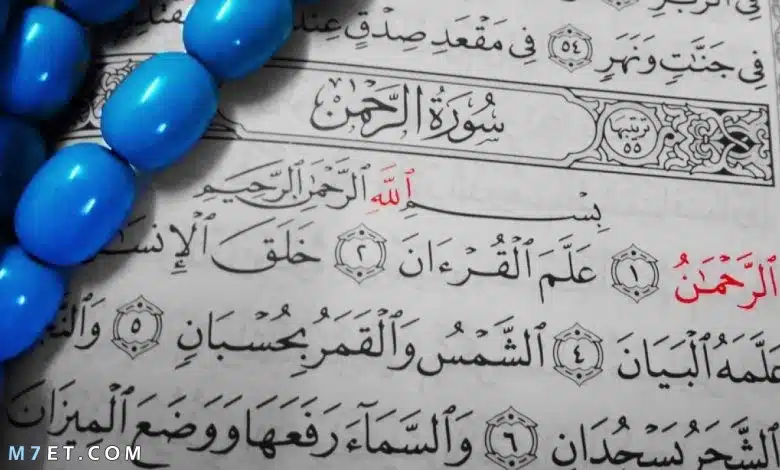 فِي جَنَّٰتٍ وَنَهَرٍ ٥٤ فِي مَقْعَدِ صِدْقٍ
سُورَةُ الرَّحْمَٰن
تَرْتِيبُهَا ٥٥
بِسْمِ ٱللَّهِ ٱلرَّحْمَٰنِ ٱلرَّحِيمِ
ٱلرَّحْمَٰنُ ١ عَلَّمَ ٱلْقُرْءَانَ ٢ خَلَقَ
عَلَّمَهُ ٱلْبَيَانَ ٤ ٱلشَّمْسُ وَٱلْقَمَرُ بِحُسْبَانٍ ٥
يَسْجُدَانِ ٦ وَٱلسَّمَآءَ رَفَعَهَا وَوَضَعَ ٱلْمِيزَانَ
M7ET.COM